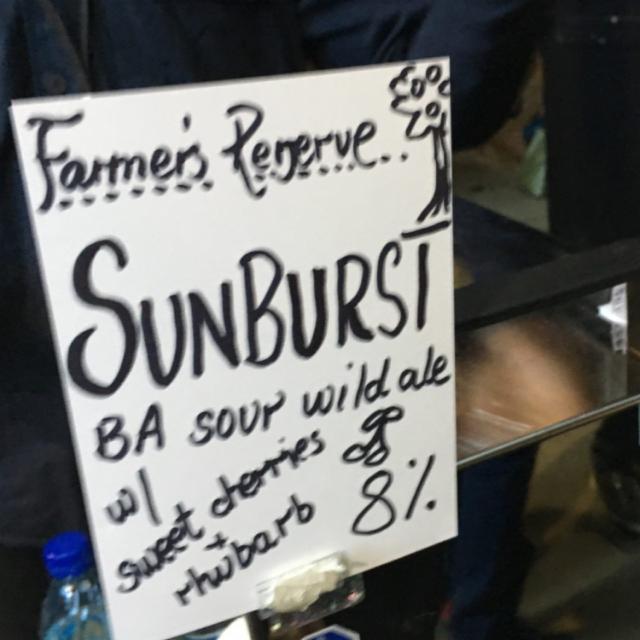 Farmer's Reserve..
SUNBURST
BA sour wild ale
w/
sweet cherries
+
rhubarb
8%